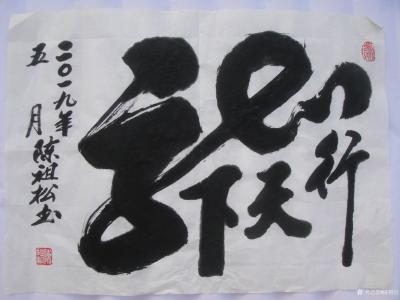 龍行天下
二〇一九年
五月陈祖松书